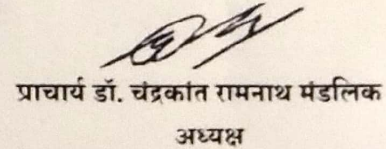 प्राचार्य डॉ. चंद्रकांत रामनाथ मंडलिक
अध्यक्ष